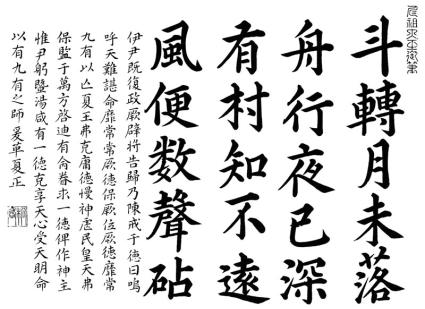 斗轉月未落
舟行夜已深
有村知不遠
風便数聲砧
伊尹既復政厥辟将告歸乃陳戒于徳曰嗚
呼天難諶命靡常常厥徳保厥位厥徳靡常
九有以亡夏王弗克庸徳慢神虐民皇天弗
保監于萬方啓迪有命眷求一徳俾作神主
惟尹躬曁湯咸有一徳克享天心受天明命
以有九有之師爰革夏正